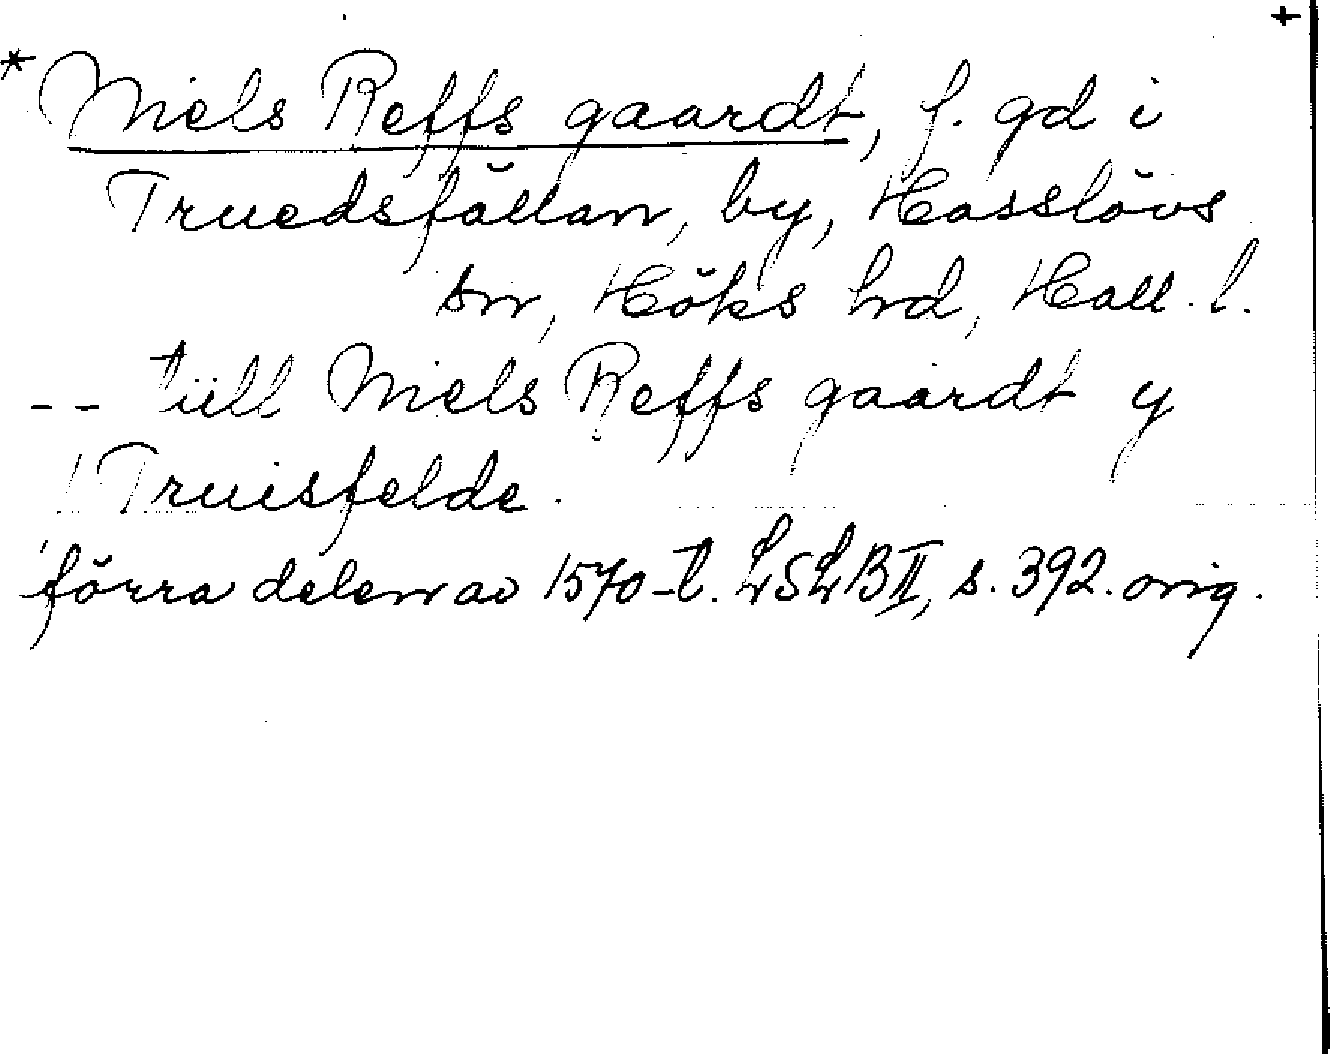 +
* Niels Reffs gaardt, f. gd i
Truedsfällan, by, Hasslövs
sn, Höks hd, Hall. l.
-- tiill Niels Reffs gaardt y
Truisfelde.
förra delen av 1570-t. LSLB II, s. 392. orig.